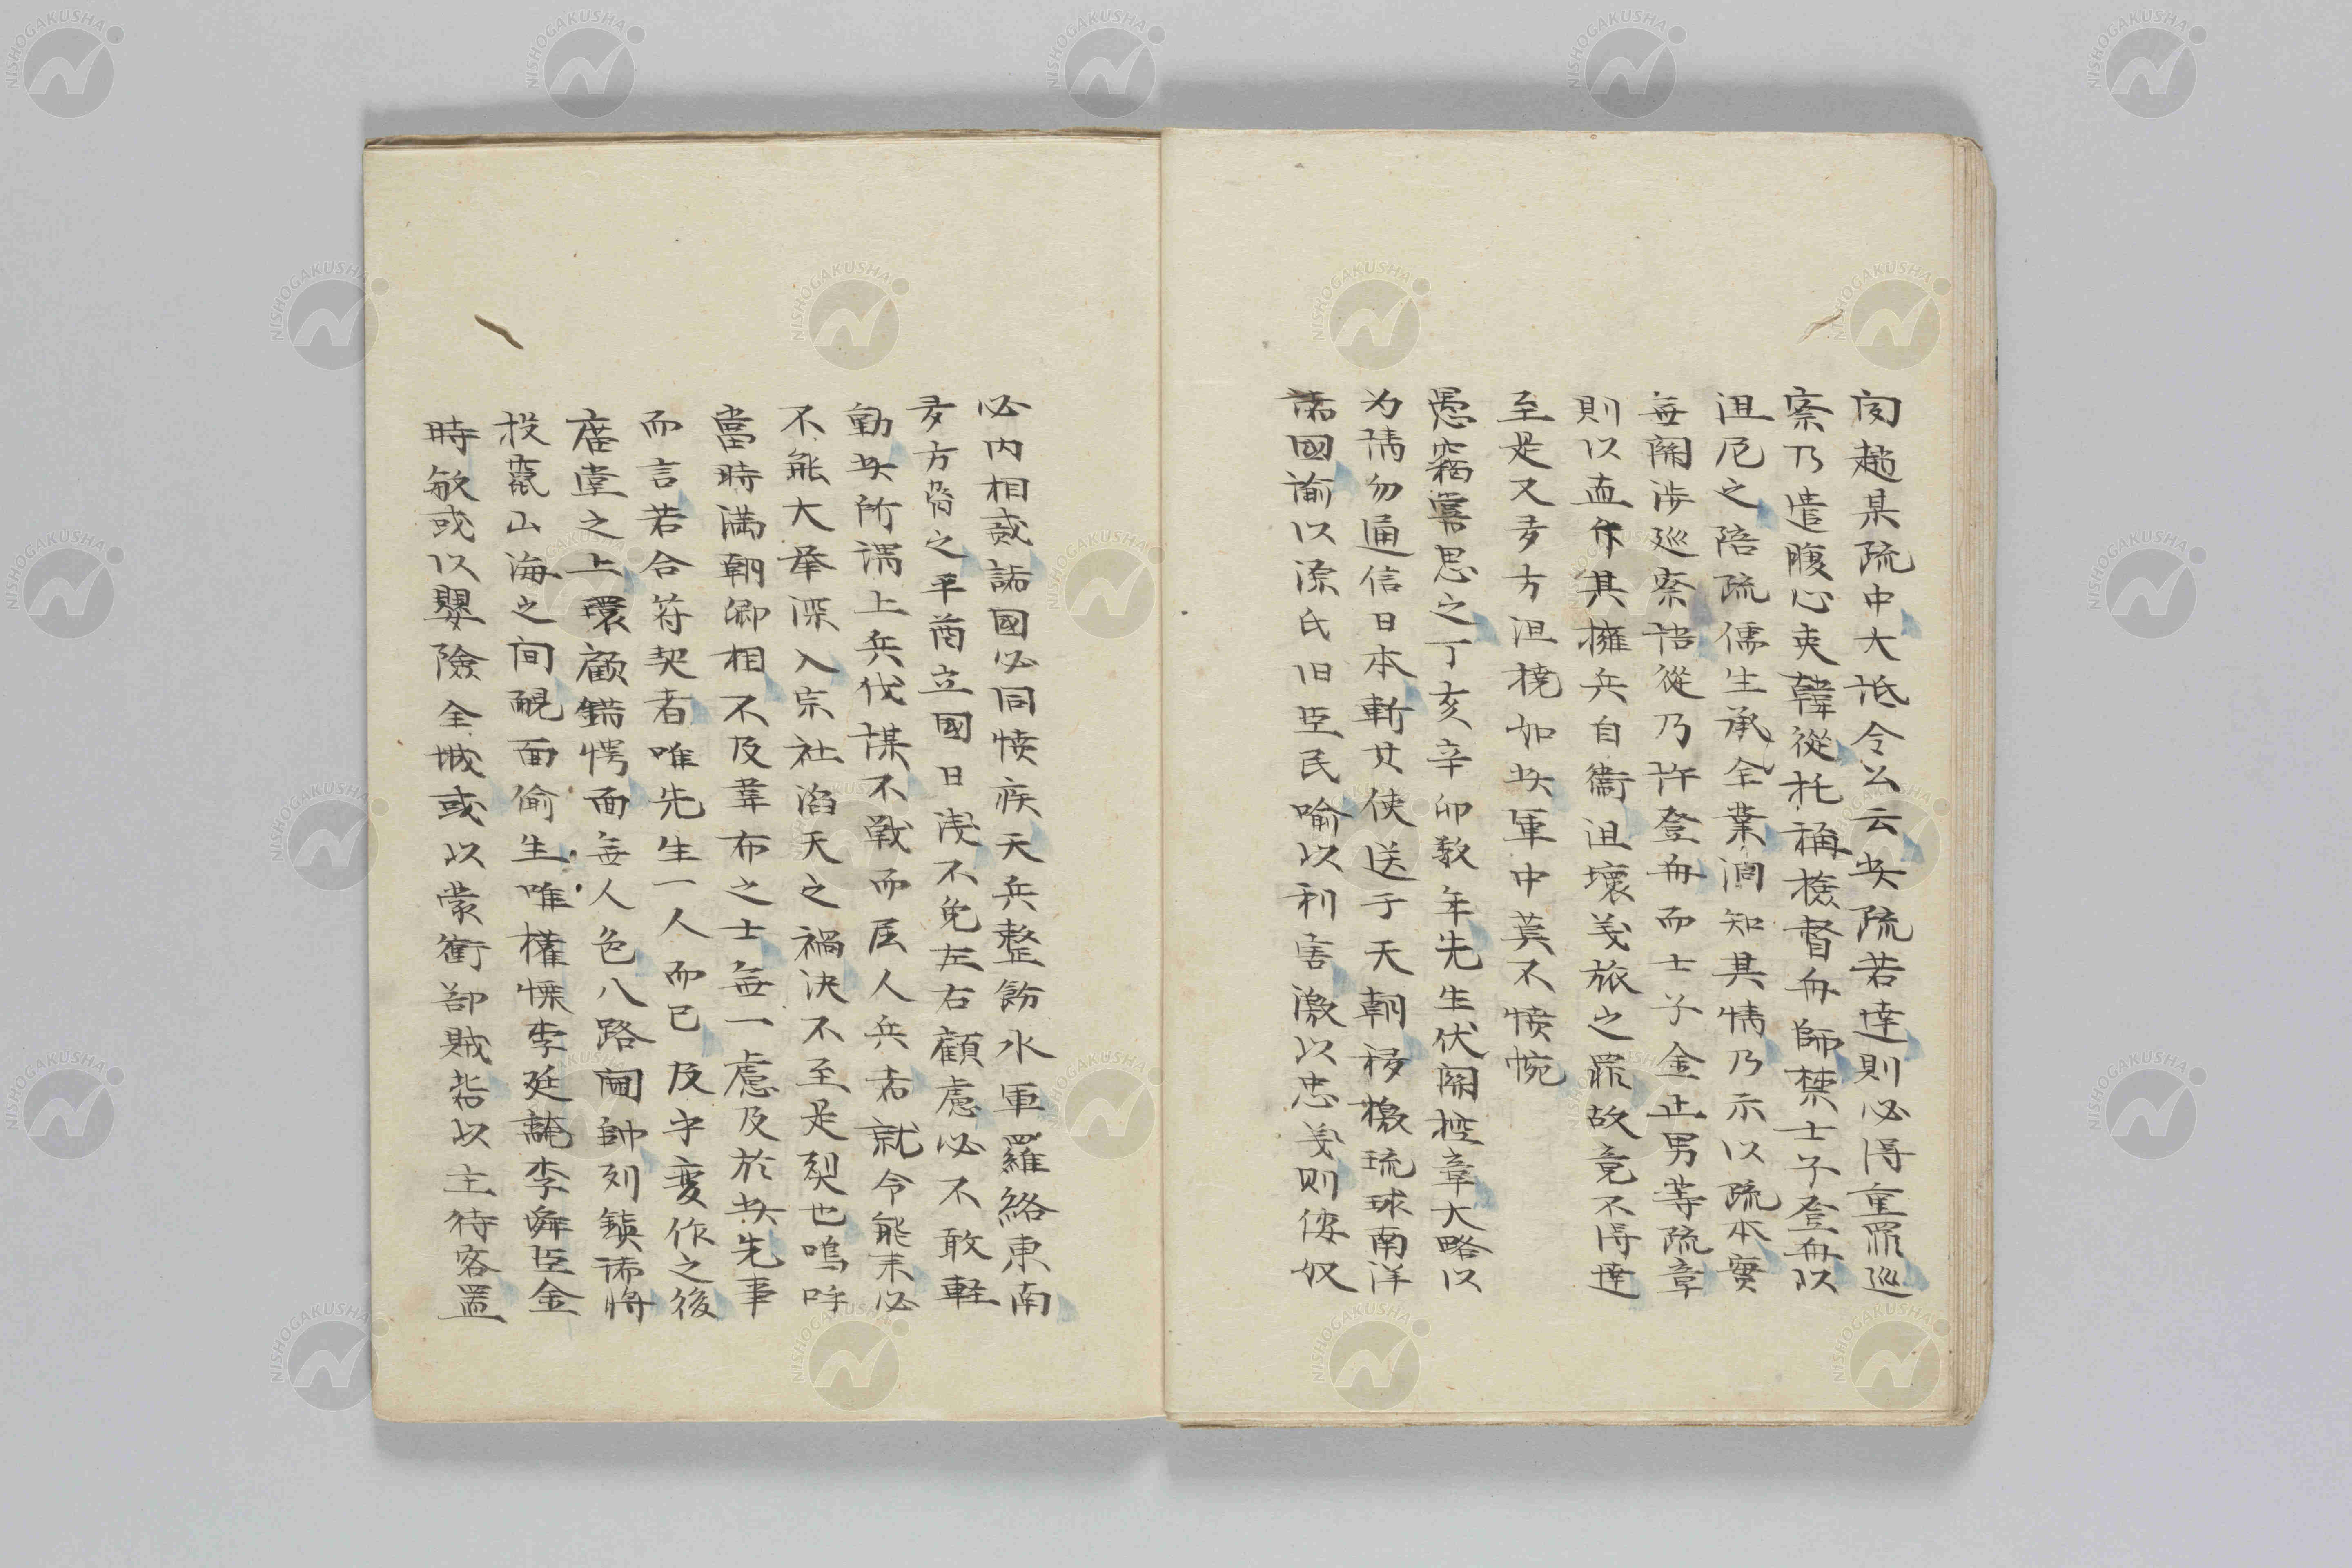 闵趙某疏中大抵令公云此疏若達則必得重罪巡
察乃遣腹心夹韓從托稱撿督舟師禁士子登舟以
沮尼之陪疏儒生承全業洞知其情乃示以疏本實
無關涉巡察語從乃許登舟而士子金止男等疏章
則以直斥其擁兵自衞沮壞義旅之罪故竟不得達
至是又多方沮撓如此軍中莫不憤惋
愚竊嘗思之丁亥辛卯數年先生伏闕控章大略以
为請勿通信日本斬其使送于天朝移檄琉球南洋
諸國諭以源氏旧臣民喻以利害激以忠義则倭奴
必内相貳諸國必同憤疾天兵整飭水軍羅絡東南
多方脅之平酋立國日淺不免左右顧慮必不敢軽
動此所謂上兵伐謀不戰而屈人兵者就令能未必
不能大举深入宗社滔天之禍決不至是烈也嗚呼
當時満朝卿相不及韋布之士無一慮及於此先事
而言若合符契者唯先生一人而已及乎变作之後
庿堂之上環顧錯愕面無人色八路閫帥列鎮諸將
投竄山海之间靦面偷生唯權慄李廷馣李舜臣金
時敏或以嬰險全城或以蒙衝却賊皆以主待客置